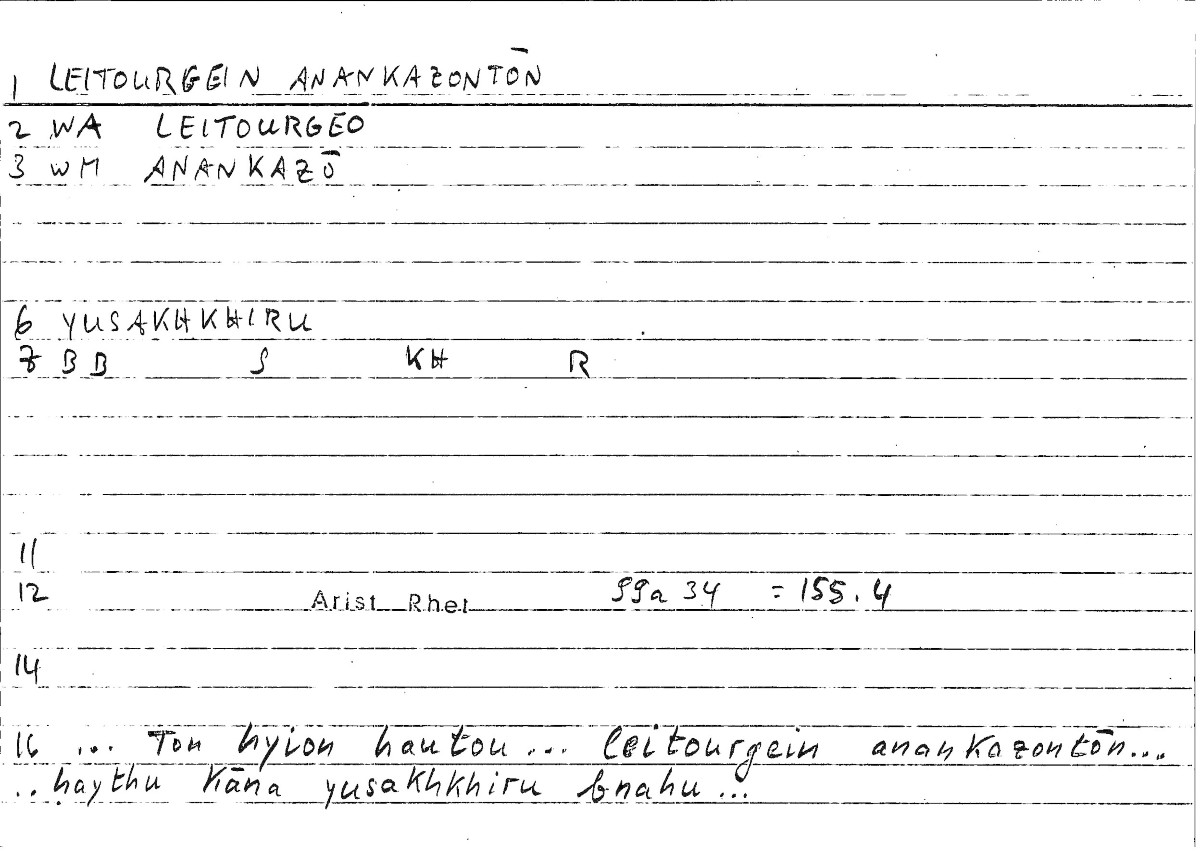 1 LEITOURGEIN ANANKAZONTŌN
2 WA LEITOURGEO
3 WM ANANKAZŌ
6 YUSAKHKHIRU
7 BB S KH R
11
12 Arist Rhet 99a 34 = 155.4
14
16 ... Ton hyion hautou ... leitourgein anankazontōn...
.. ḥaythu kāna yusakhkhiru bnahu ...